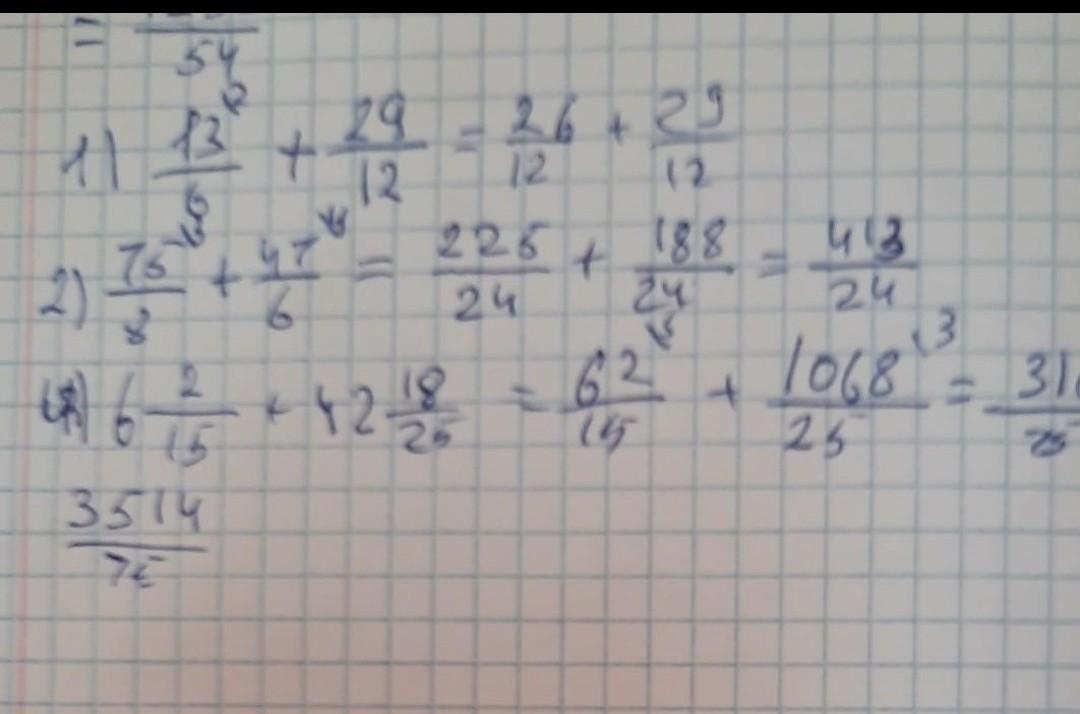 = /54
1) 13/6 + 29/12 = 26/12 + 29/12
2) 75/8 + 47/6 = 225/24 + 188/24 = 413/24
4) 6 2/15 + 42 18/25 = 62/15 + 1068/25 \3 = 31/75
3514/75